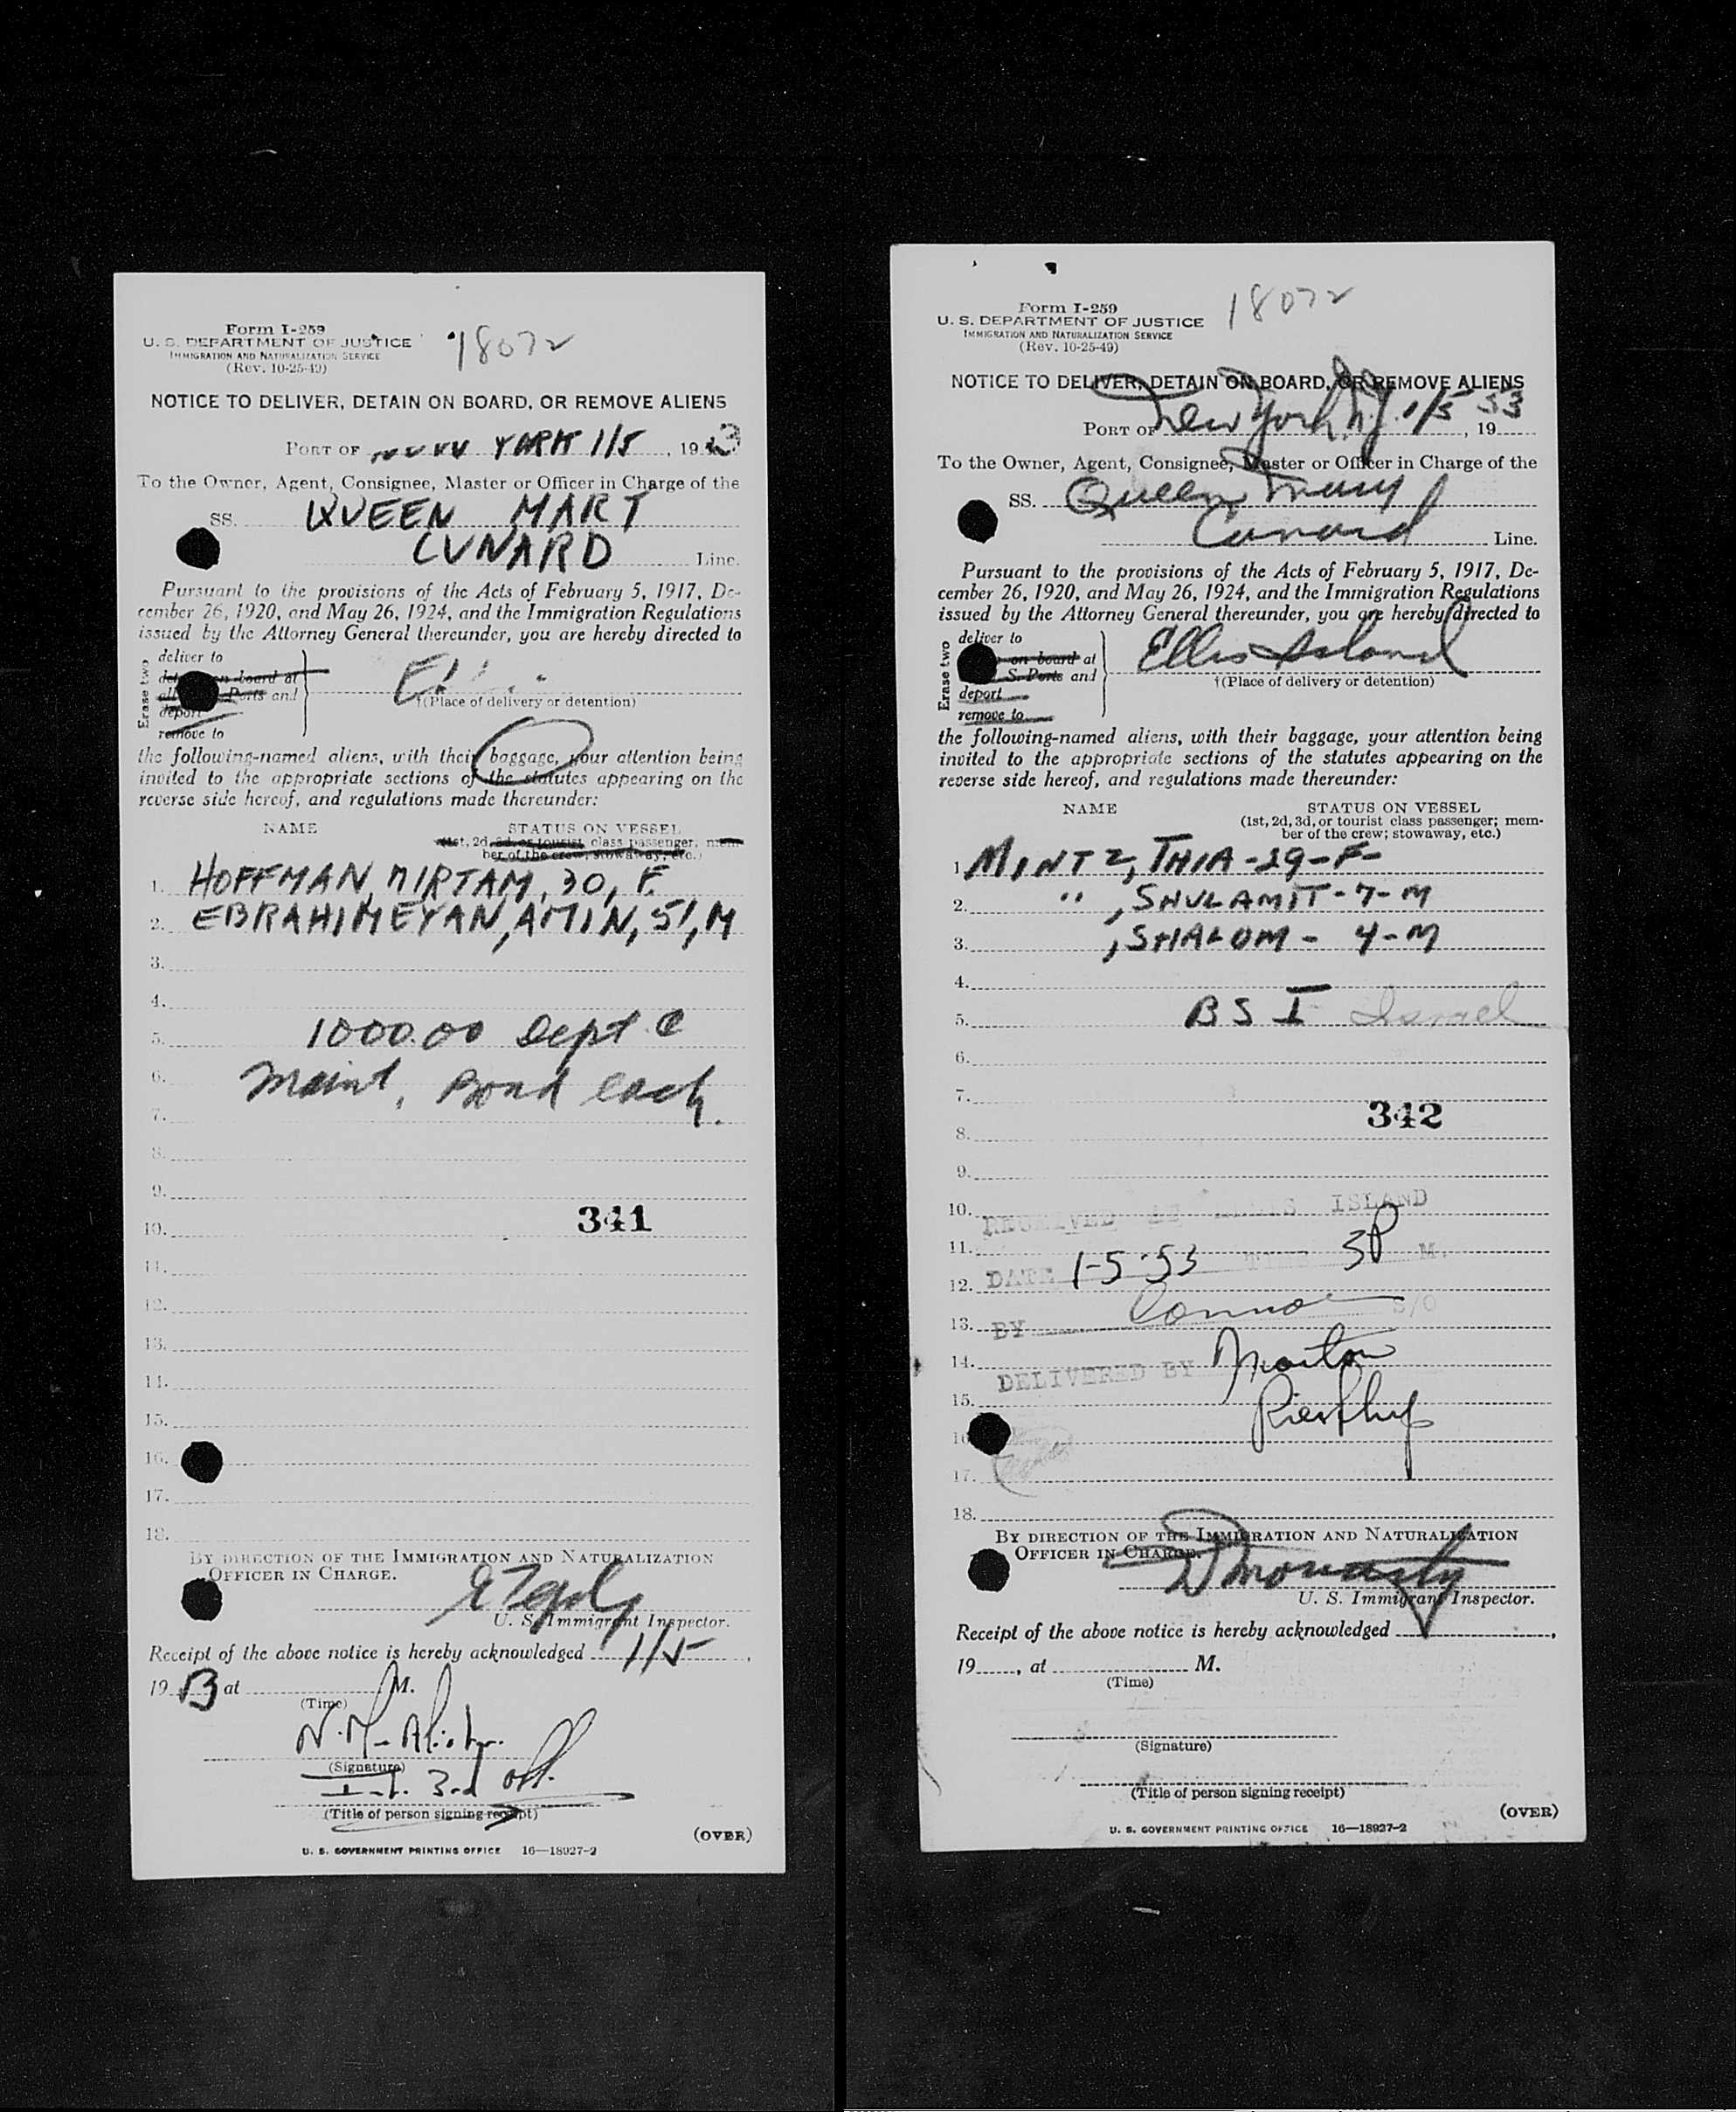 Form I-259
U. S. DEPARTMENT OF JUSTICE
IMMIGRATION AND NATURALIZATION SERVICE
(Rev. 10-25-49)
18072
NOTICE TO DELIVER, DETAIN ON BOARD, OR REMOVE ALIENS
PORT OF YORK 1/5, 19
To the Owner, Agent, Consignee, Master or Officer in Charge of the
SS. QUEEN MARY
CUNARD Line.
Pursuant to the provisions of the Acts of February 5, 1917, De-
cember 26, 1920, and May 26, 1924, and the Immigration Regulations
issued by the Attorney General thereunder, you are hereby directed to
Erase two
deliver to
on board at
Ports and
deport
remove to
†(Place of delivery or detention)
the following-named aliens, with their baggage, your attention being
invited to the appropriate sections of the statutes appearing on the
reverse side hereof, and regulations made thereunder:
NAME STATUS ON VESSEL
(1st, 2d, 3d, or tourist class passenger, mem-
ber of the crew, stowaway, etc.)
1. HOFFMAN, MIRIAM, 30, F.
2. EBRAHIMEYAN, AMIN, 51, M
3.
4.
5. 1000.00 Dept &
6. Maint. Bond each.
7.
8.
9.
341
10.
11.
12.
13.
14.
15.
16.
17.
18.
BY DIRECTION OF THE IMMIGRATION AND NATURALIZATION
OFFICER IN CHARGE.
U. S. Immigrant Inspector.
Receipt of the above notice is hereby acknowledged 1/5,
19 53 at M.
(Time)
(Signature)
Int. 3rd off.
(Title of person signing receipt)
(OVER)
U. S. GOVERNMENT PRINTING OFFICE 16—18927-2
Form I-259
U. S. DEPARTMENT OF JUSTICE
IMMIGRATION AND NATURALIZATION SERVICE
(Rev. 10-25-49)
18072
NOTICE TO DELIVER, DETAIN ON BOARD, OR REMOVE ALIENS
PORT OF New York, N.Y. 1/5, 19 53
To the Owner, Agent, Consignee, Master or Officer in Charge of the
SS. Queen Mary
Cunard Line.
Pursuant to the provisions of the Acts of February 5, 1917, De-
cember 26, 1920, and May 26, 1924, and the Immigration Regulations
issued by the Attorney General thereunder, you are hereby directed to
Erase two
deliver to
on board at
S. Ports and
deport
remove to
Ellis Island
†(Place of delivery or detention)
the following-named aliens, with their baggage, your attention being
invited to the appropriate sections of the statutes appearing on the
reverse side hereof, and regulations made thereunder:
NAME STATUS ON VESSEL
(1st, 2d, 3d, or tourist class passenger; mem-
ber of the crew; stowaway, etc.)
1. MINTZ, THIA-29-F-
2. " , SHULAMIT-7-M
3. , SHALOM- 4-M
4.
5. BSI Israel
6.
7.
342
8.
9.
10. RECEIVED AT ELLIS ISLAND
11.
12. DATE 1-5-53 TIME 3P M.
13. BY S/O
14. DELIVERED BY
15.
16.
17.
18.
BY DIRECTION OF THE IMMIGRATION AND NATURALIZATION
OFFICER IN CHARGE.
U. S. Immigrant Inspector.
Receipt of the above notice is hereby acknowledged ,
19 , at M.
(Time)
(Signature)
(Title of person signing receipt)
(OVER)
U. S. GOVERNMENT PRINTING OFFICE 16—18927-2